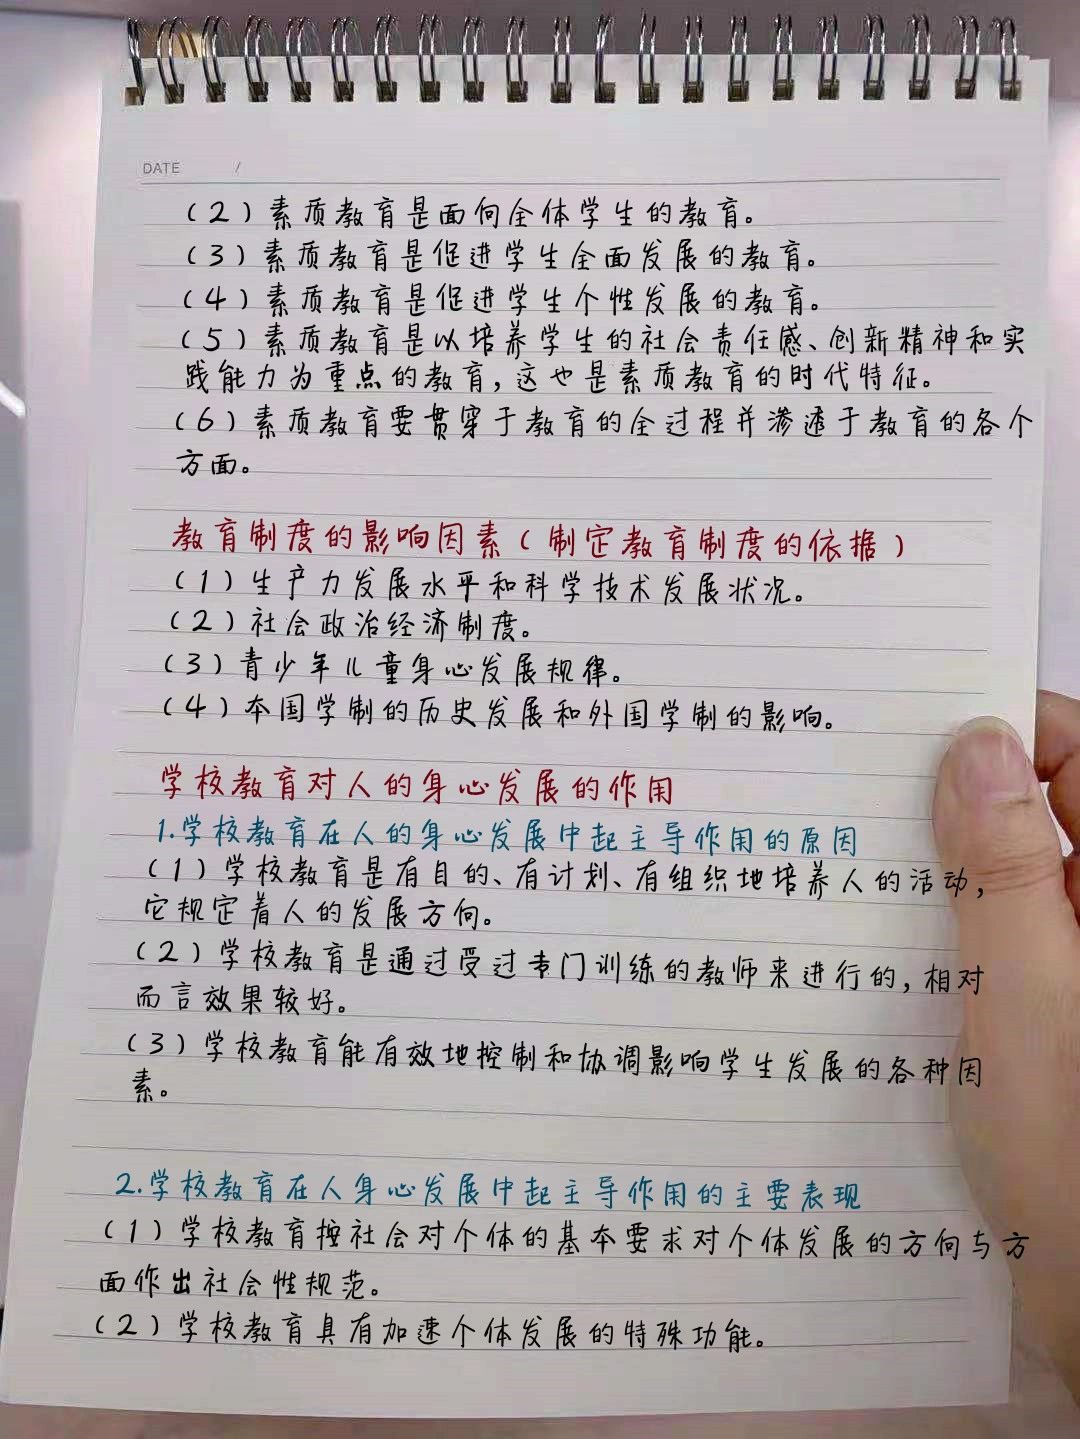 DATE /
(2)素质教育是面向全体学生的教育。
(3)素质教育是促进学生全面发展的教育。
(4)素质教育是促进学生个性发展的教育。
(5)素质教育是以培养学生的社会责任感、创新精神和实
践能力为重点的教育,这也是素质教育的时代特征。
(6)素质教育要贯穿于教育的全过程并渗透于教育的各个
方面。
教育制度的影响因素(制定教育制度的依据)
(1)生产力发展水平和科学技术发展状况。
(2)社会政治经济制度。
(3)青少年儿童身心发展规律。
(4)本国学制的历史发展和外国学制的影响。
学校教育对人的身心发展的作用
1.学校教育在人的身心发展中起主导作用的原因
(1)学校教育是有目的、有计划、有组织地培养人的活动,
它规定着人的发展方向。
(2)学校教育是通过受过专门训练的教师来进行的,相对
而言效果较好。
(3)学校教育能有效地控制和协调影响学生发展的各种因
素。
2.学校教育在人身心发展中起主导作用的主要表现
(1)学校教育按社会对个体的基本要求对个体发展的方向与方
面作出社会性规范。
(2)学校教育具有加速个体发展的特殊功能。